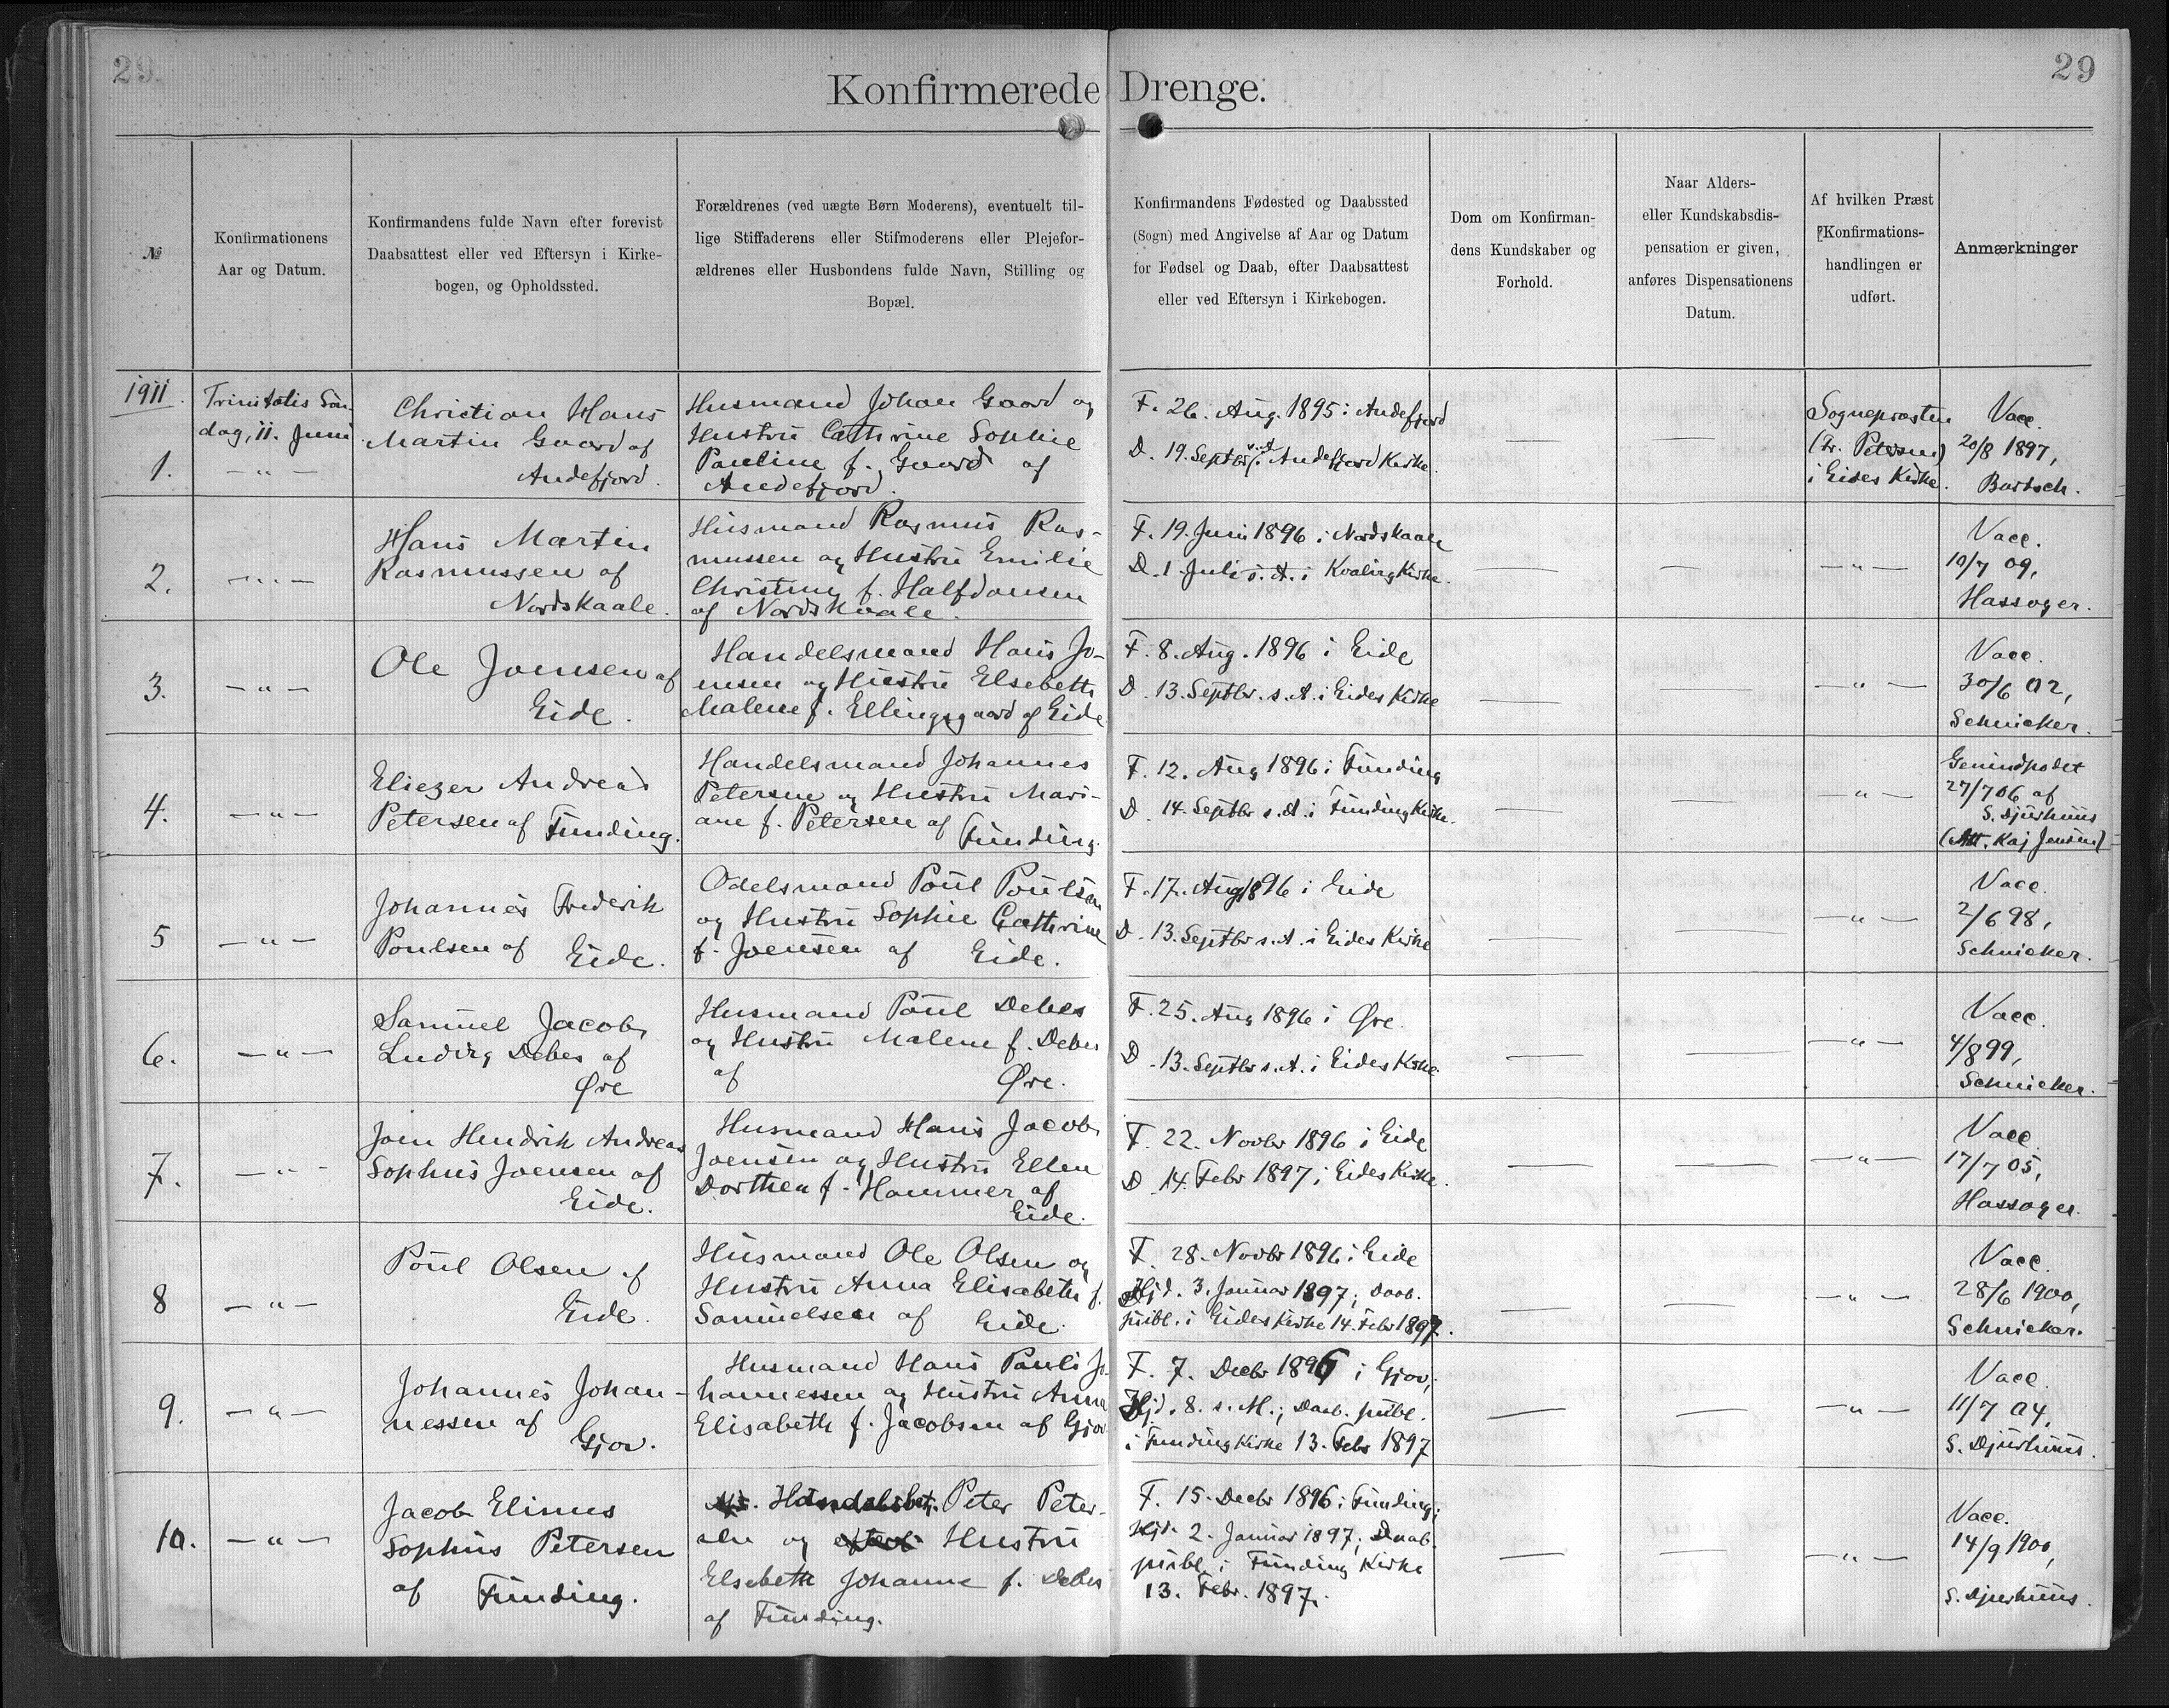 29.
29
Konfirmerede Drenge.
№
Konfirmationens
Aar og Datum.
Konfirmandens fulde Navn efter forevist
Daabsattest eller ved Eftersyn i Kirke-
bogen, og Opholdssted.
Forældrenes (ved uægte Børn Moderens), eventuelt til-
lige Stiffaderens eller Stifmoderens eller Plejefor-
ældrenes eller Husbondens fulde Navn, Stilling og
Bopæl.
Konfirmandens Fødested og Daabssted
(Sogn) med Angivelse af Aar og Datum
for Fødsel og Daab, efter Daabsattest
eller ved Eftersyn i Kirkebogen.
Dom om Konfirman-
dens Kundskaber og
Forhold.
Naar Alders-
eller Kundskabsdis-
pensation er given,
anføres Dispensationens
Datum.
Af hvilken Præst
Konfirmations-
handlingen er
udført.
Anmærkninger
1911.
1.
Trinitatis Søn-
dag, 11. Juni
— " —
Christian Hans
Martin Gaard af
Andefjord.
Husmand Johan Gaard og
Hustru Cathrine Sophie
Pauline f. Gaard af
Andefjord.
F. 26. Aug. 1895 i Andefjord
D. 19. Septbr. s. A. i Andefjord Kirke.
—
—
Sognepræsten
(Fr. Petersen)
i Eides Kirke.
Vacc.
20/8 1897,
Bartsch.
2.
— " —
Hans Martin
Rasmussen af
Nordskaale.
Husmand Rasmus Ras-
mussen og Hustru Emilie
Christine f. Halfdansen
af Nordskaale.
F. 19. Juni 1896 i Nordskaale
D. 1. Juli s. A. i Kvalvig Kirke.
—
—
— " —
Vacc.
10/7 09,
Hassager.
3.
— " —
Ole Joensen af
Eide.
Handelsmand Hans Jo-
ensen og Hustru Elsebeth
Malene f. Ellingsgaard af Eide
F. 8. Aug. 1896 i Eide
D. 13. Septbr. s. A. i Eides Kirke
—
—
— " —
Vacc.
30/6 02,
Schnicker.
4.
— " —
Eliezer Andreas
Petersen af Funding.
Handelsmand Johannes
Petersen og Hustru Mari-
ane f. Petersen af
Funding.
F. 12. Aug 1896 i Funding
D. 14. Septbr s. A. i Funding Kirke.
—
—
— " —
Genindpodet
27/7 06 af
S. Djurhuus
(Att. Kaj Jensen)
5
— " —
Johannes Frederik
Poulsen af Eide.
Odelsmand Poul Poulsen
og Hustru Sophie Cathrine
f. Joensen af Eide.
F. 17. Aug 1896 i Eide
D. 13. Septbr s. A. i Eides Kirke
—
—
— " —
Vacc.
2/6 98,
Schnicker.
6.
— " —
Samuel Jacob
Ludvig Debes af
Øre
Husmand Poul Debes
og Hustru Malene f. Debes
af Øre.
F. 25. Aug 1896 i Øre.
D. 13. Septbr s. A. i Eides Kirke
—
—
— " —
Vacc.
4/8 99,
Schnicker.
7.
— " —
Joen Hendrik Andreas
Sophus Joensen af
Eide.
Husmand Hans Jacob
Joensen og Hustru Ellen
Dorthea f. Hammer af
Eide.
F. 22. Novbr 1896 i Eide
D. 14. Febr 1897 i Eides Kirke.
—
—
— " —
Vacc
17/7 05,
Hassager.
8
— " —
Poul Olsen af
Eide.
Husmand Ole Olsen og
Hustru Anna Elisabeth f.
Samuelsen af Eide.
F. 28. Novbr 1896 i Eide
Hjd. 3. Januar 1897; Daab.
publ. i Eides Kirke 14. Febr 1897.
—
—
— " —
Vacc.
28/6 1900,
Schnicker.
9.
— " —
Johannes Johan-
nessen af
Gjov.
Husmand Hans Pauli Jo-
hannessen og Hustru Anna
Elisabeth f. Jacobsen af Gjov
F. 7. Decbr 1896 i Gjov;
Hjd. 8. s. M.; Daab. publ.
i Funding Kirke 13. Febr 1897
—
—
— " —
Vacc.
11/7 04,
S. Djurhuus.
10.
— " —
Jacob Elinus
Sophus Petersen
af Funding.
Peter Peter-
sen og Hustru
Elsebeth Johanne f. Debes
af Funding.
F. 15. Decbr 1896 i Funding;
Hjd. 2. Januar 1897; Daab.
publ. i Funding Kirke
13. Febr. 1897.
—
—
— " —
Vacc.
14/9 1900,
S. Djurhuus.